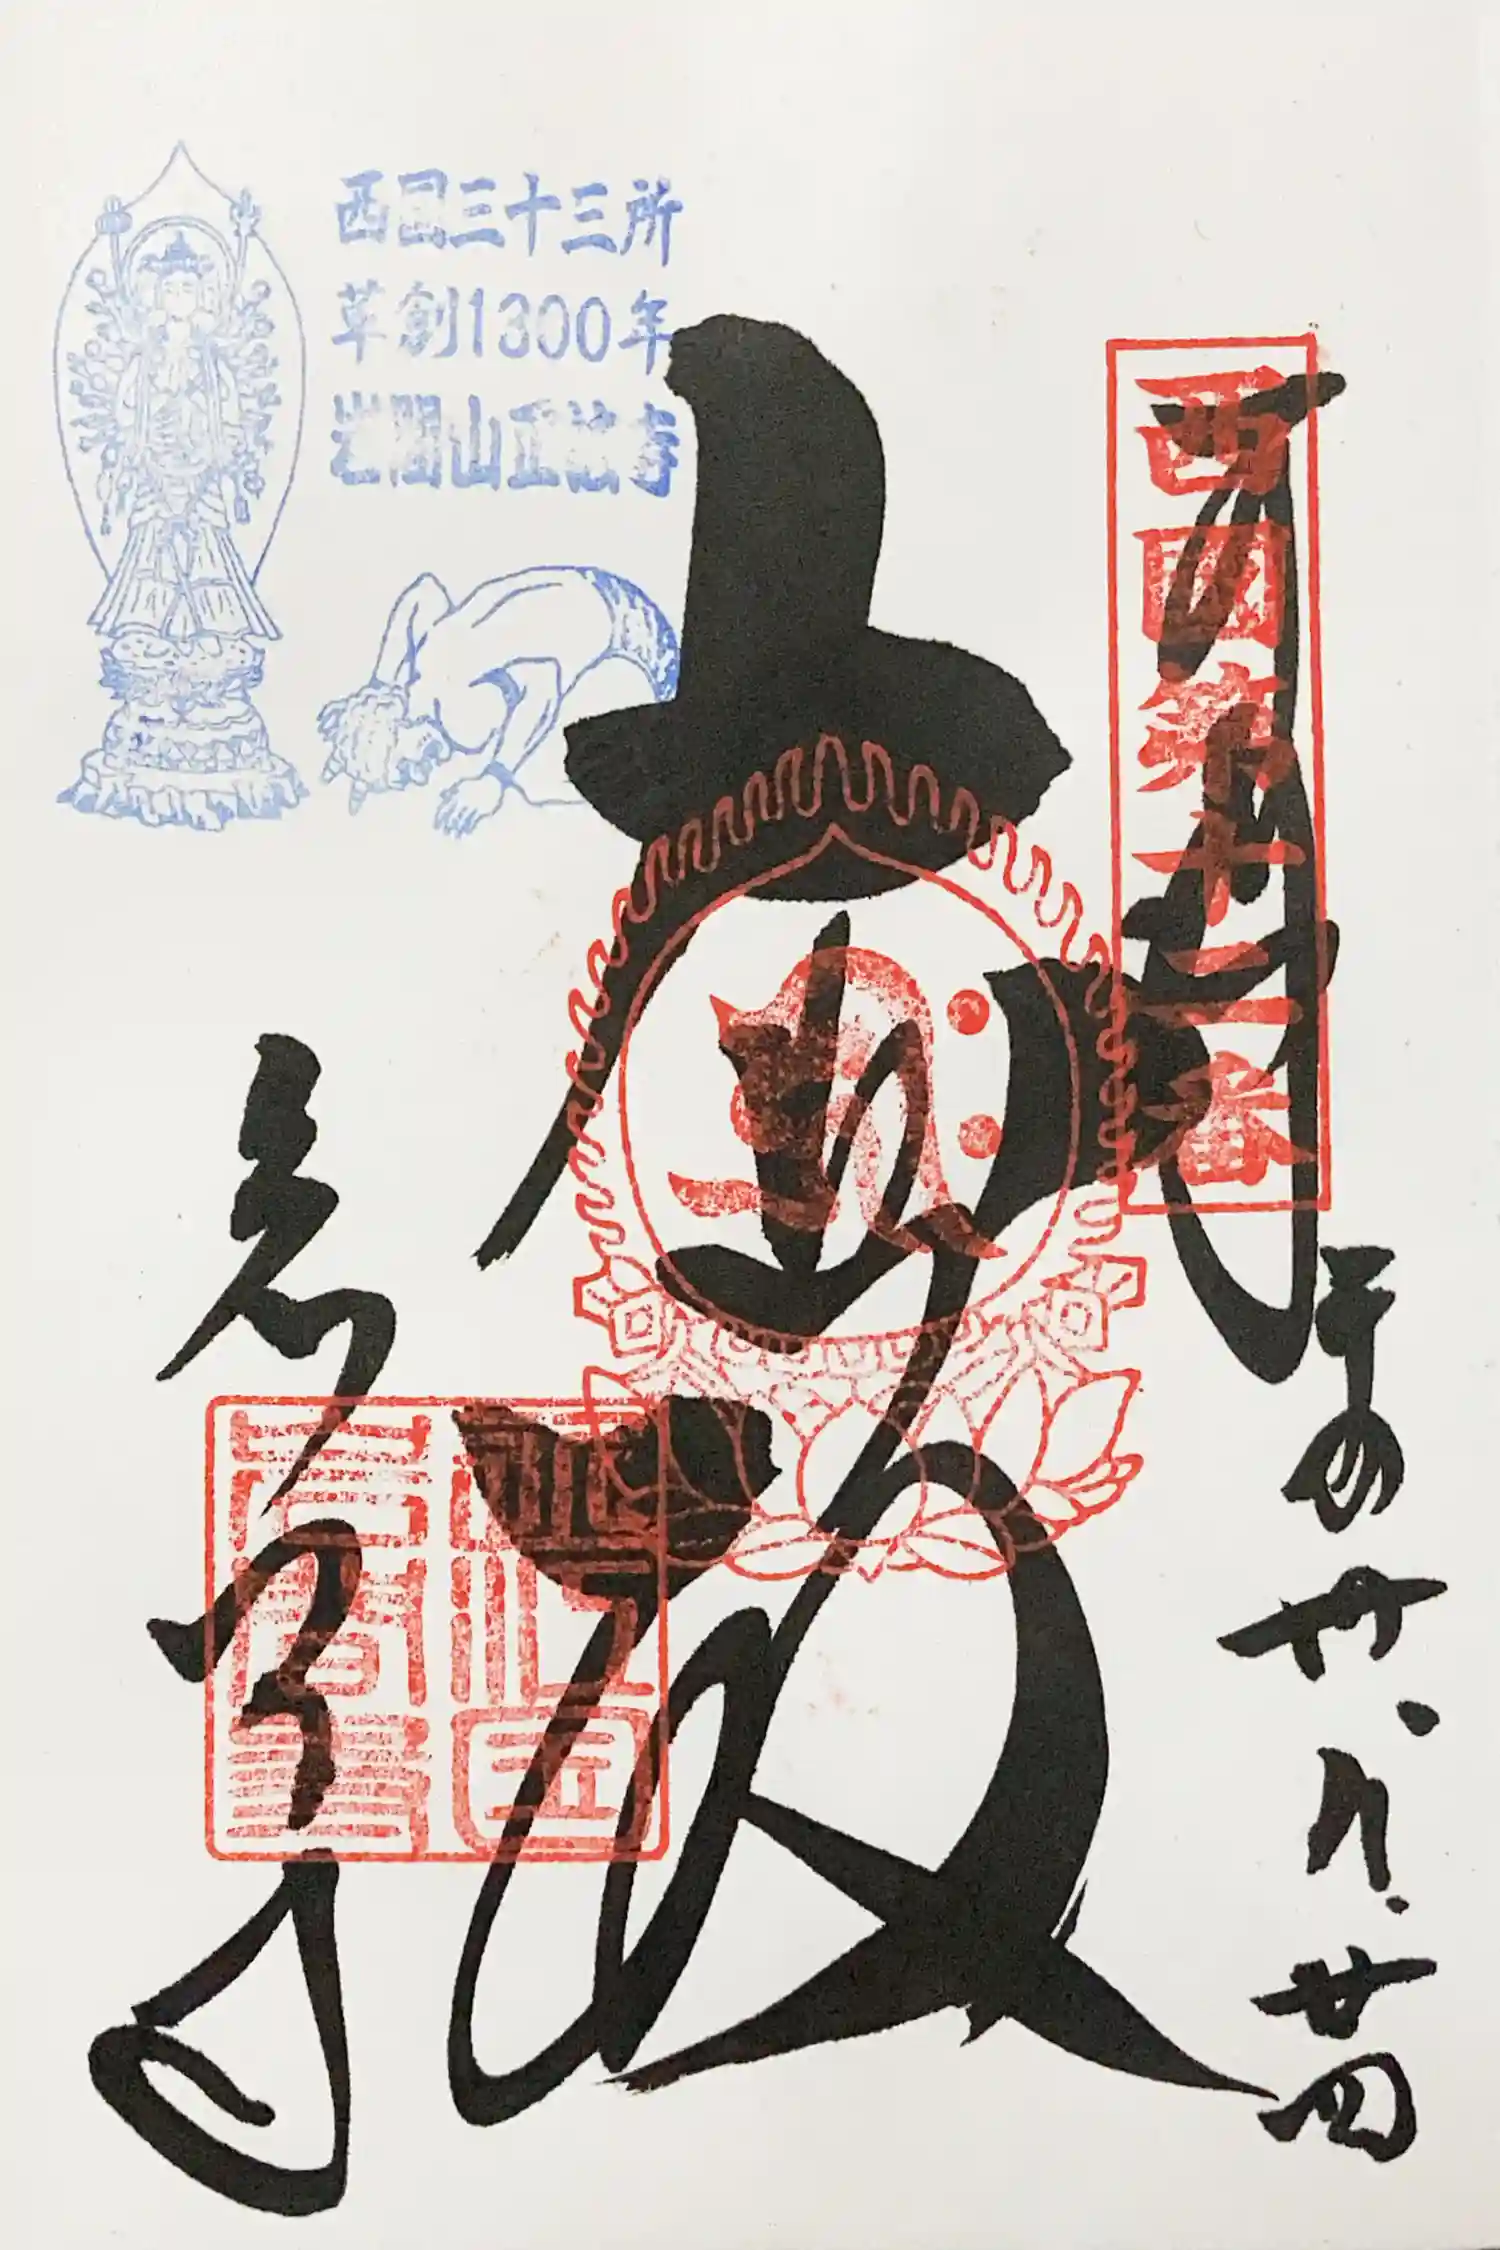 西国三十三所
草創1300年
岩間山正法寺
西国第十二番
奉拝
平成廿、九、廿四
大悲殿
岩間寺